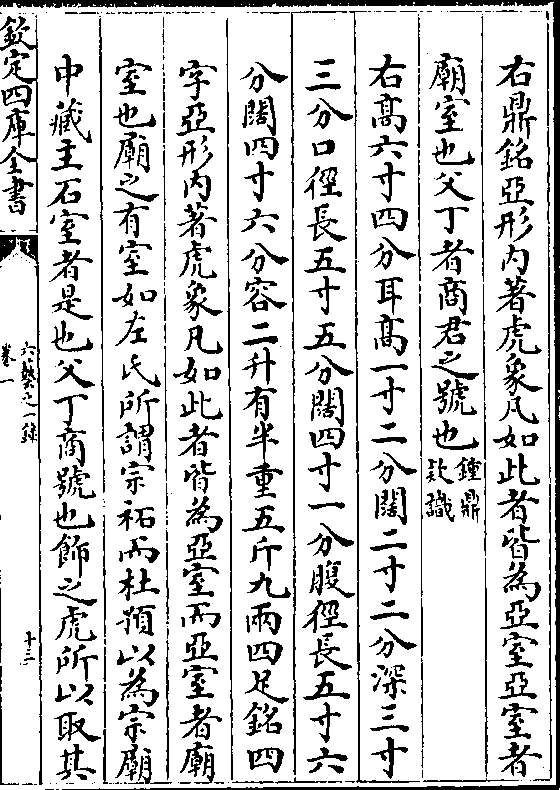 右鼎銘亞形内著虎象凡如此者皆為亞室亞室者
廟室也父丁者商君之號也鍾鼎款識
右髙六寸四分耳髙一寸二分闊二寸二分深三寸
三分口徑長五寸五分闊四寸一分腹徑長五寸六
分闊四寸六分容二升有半重五斤九兩四足銘四
字亞形内著虎象凡如此者皆為亞室而亞室者廟
室也廟之有室如左氏所謂宗祏而杜預以為宗廟
中藏主石室者是也父丁商號也飾之虎所以取其
欽定四庫全書
六藝之一錄
卷一
十三